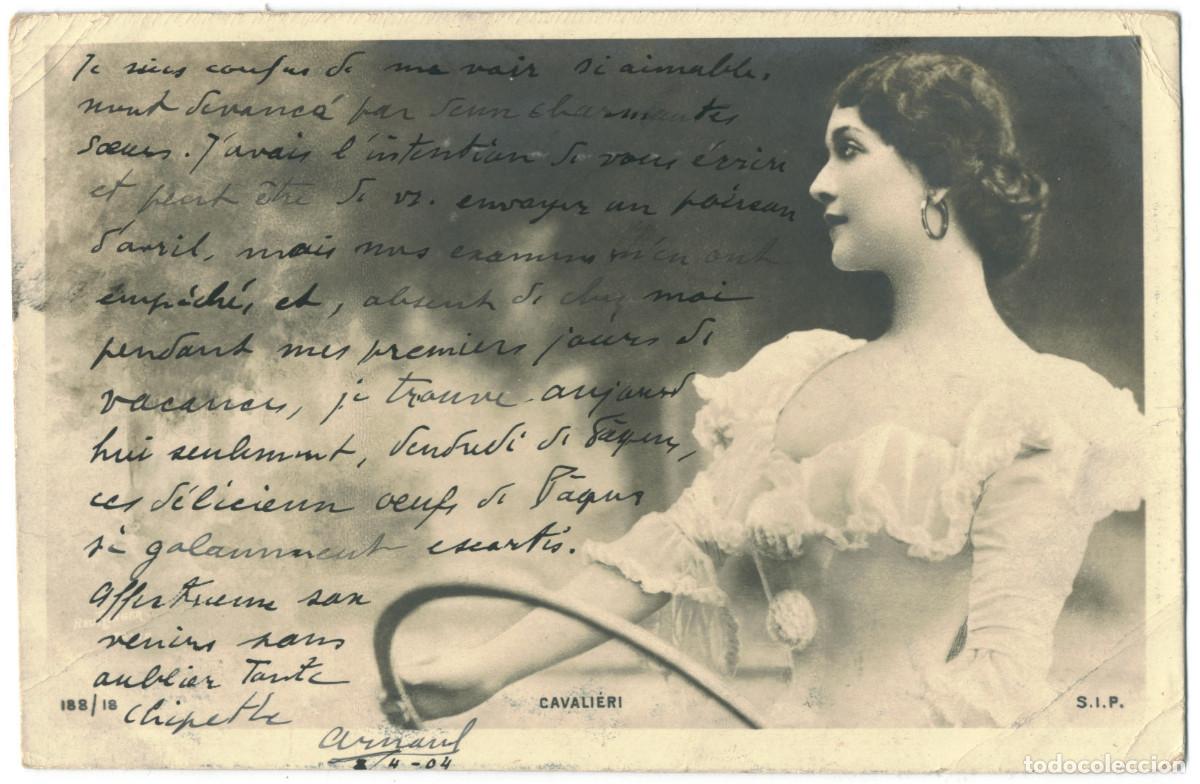 Je suis confus de me voir si aimable.
ment devancé par deux charmantes
sœurs. J'avais l'intention de vous écrire
et peut être de vs. envoyer un poisson
d'avril, mais mes examens m'en ont
empêché, et, absent de chez moi
pendant mes premiers jours de
vacances, je trouve aujourd
hui seulement, Vendredi de Pâques,
ces délicieux œufs de Pâques
si galamment escortés.
Affectueux sou
venirs sans
oublier Tante
Chipette
Arnaud
8/4-04
188/18
CAVALIÉRI
S.I.P.
todocoleccion